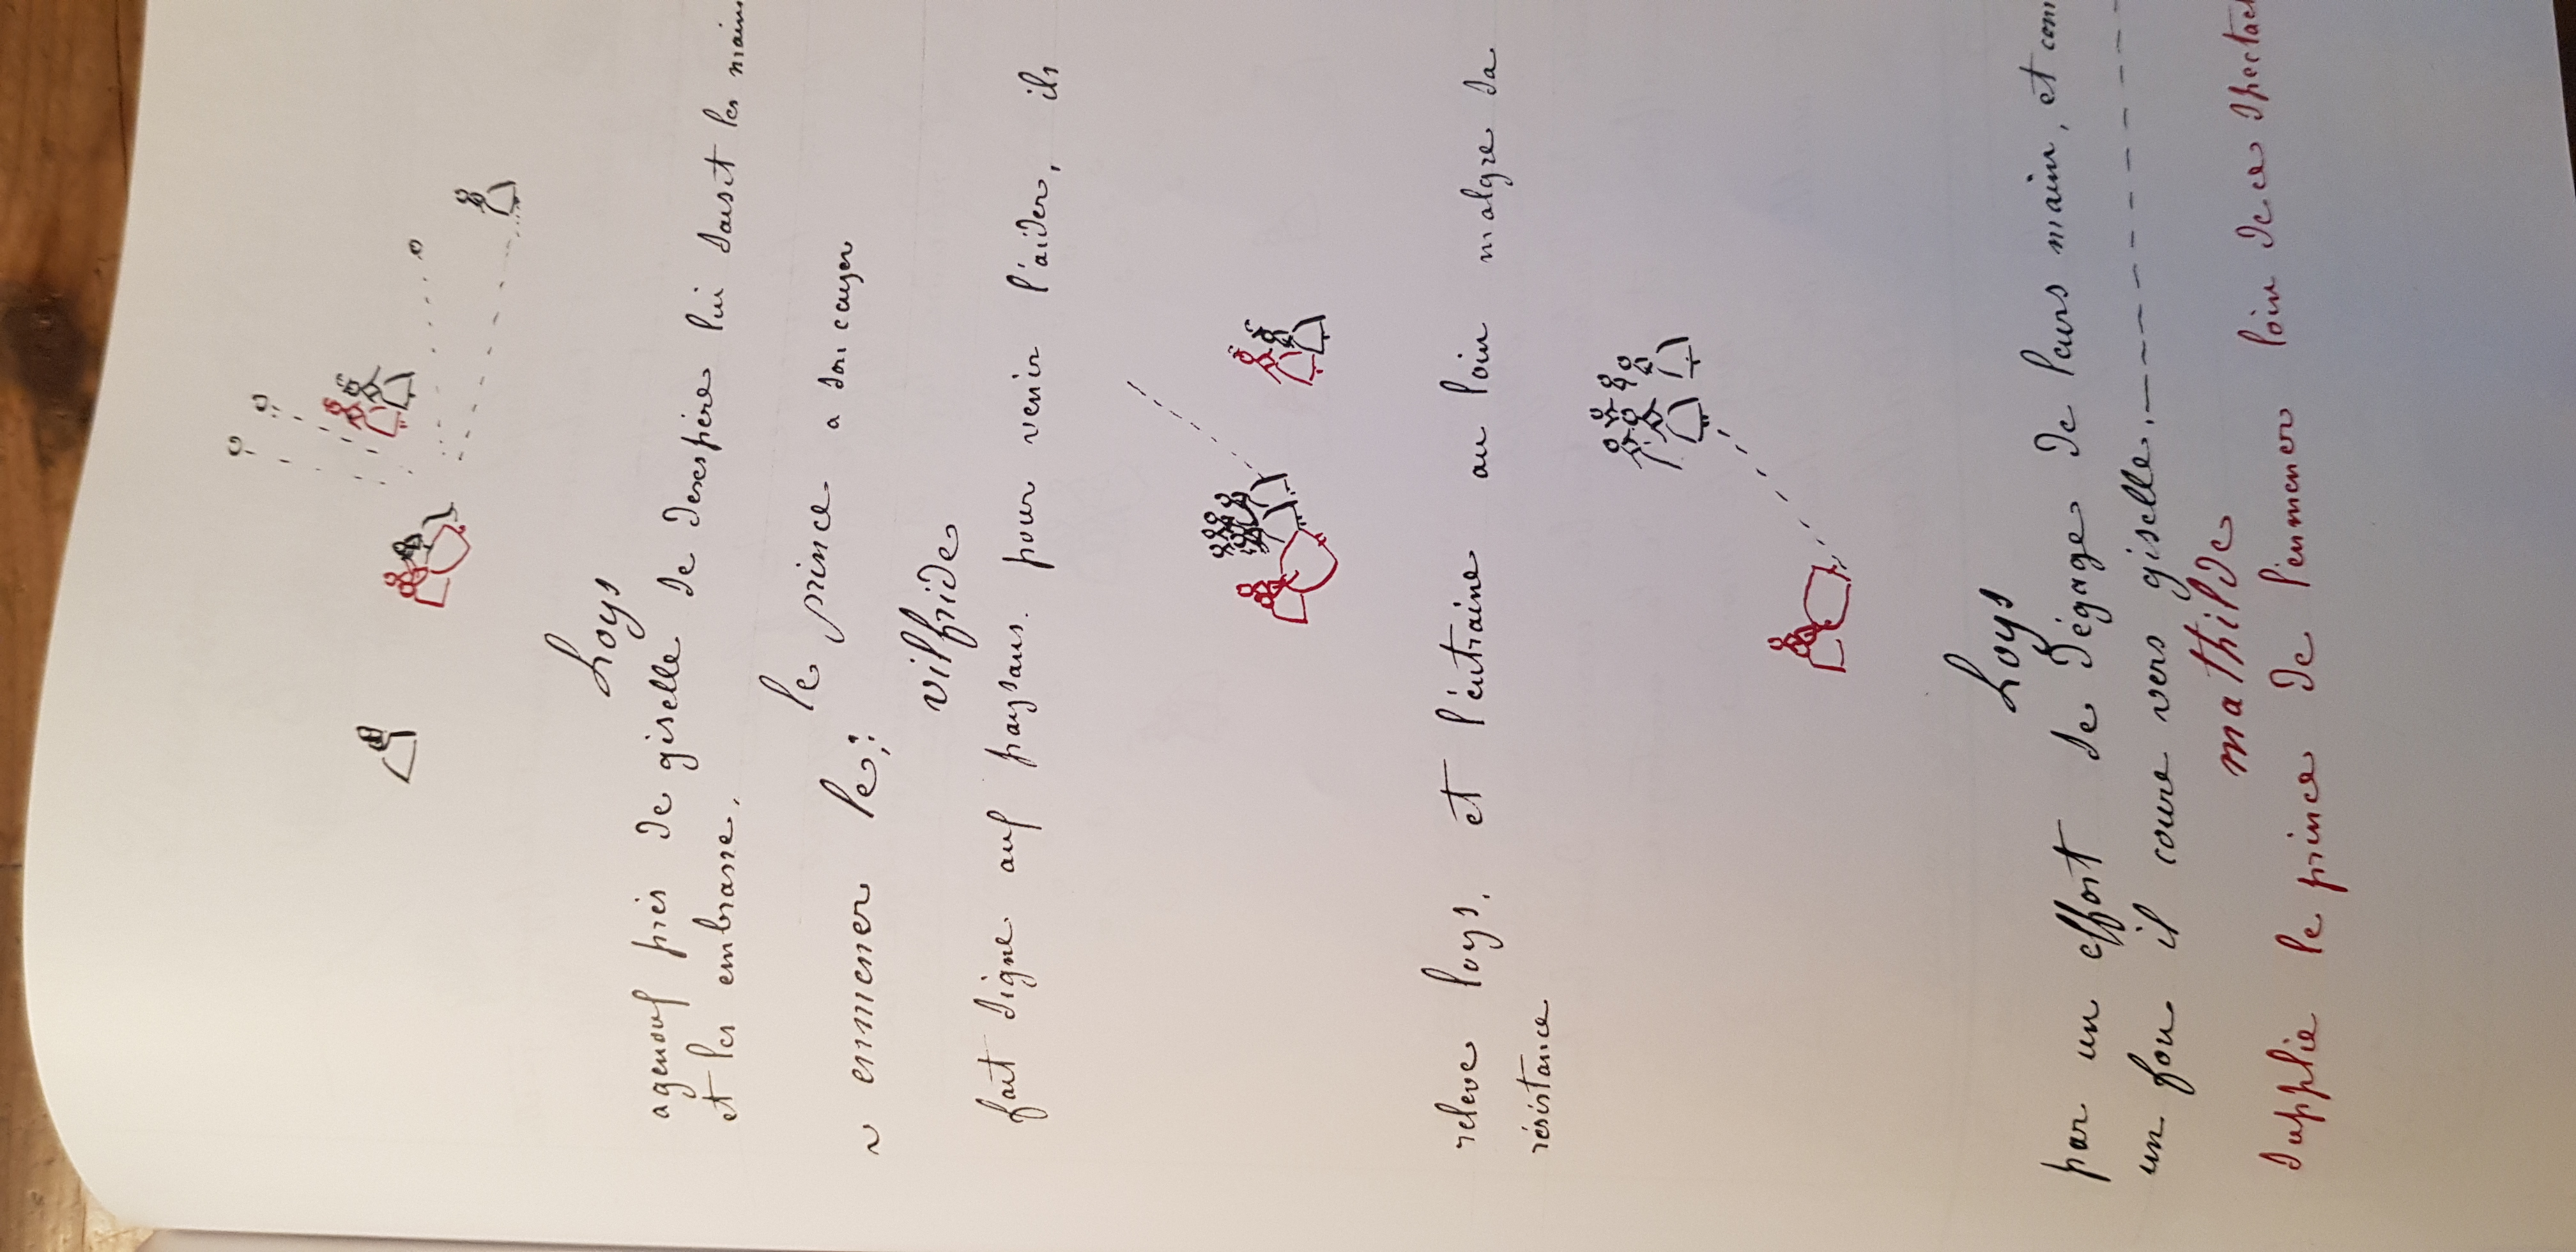 Loys
agenouf près de giselle se desespère lui saisit les mains
et les embrasse,
le prince a son ecuyer
emmener le;
vilfride
fait signe auf paysans. pour venir l'aider, ils
releve loys, et l'entraine au loin malgre sa
résistance
Loys
par un effort se dégage de leurs main, et com
un fou il coure vers giselle.
mathilde
supplie le prince de l'emmener loin de ce spectacl